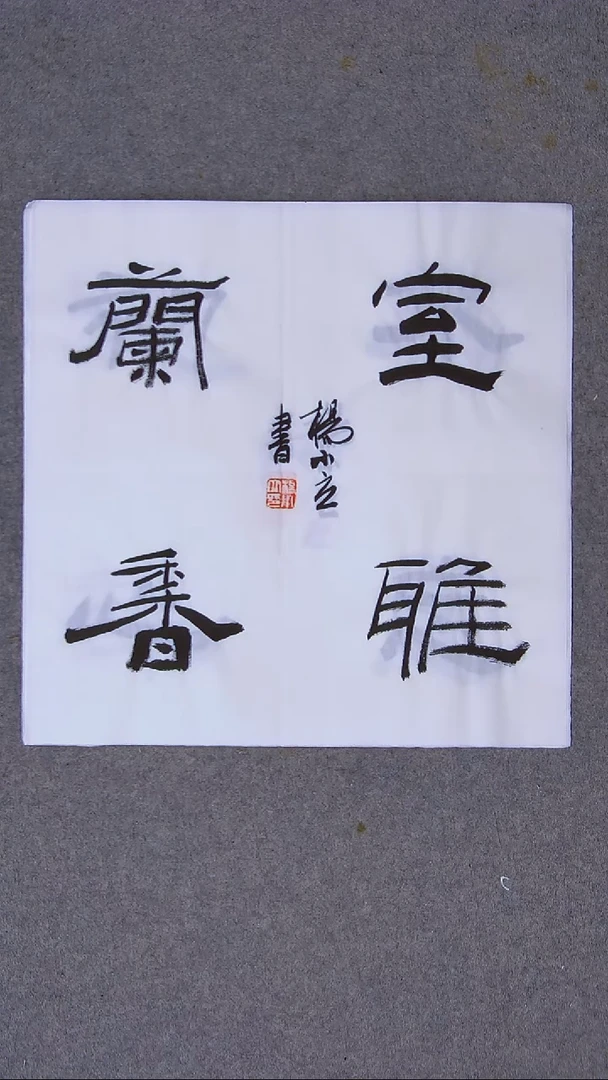 室雅
蘭香
楊小立
書